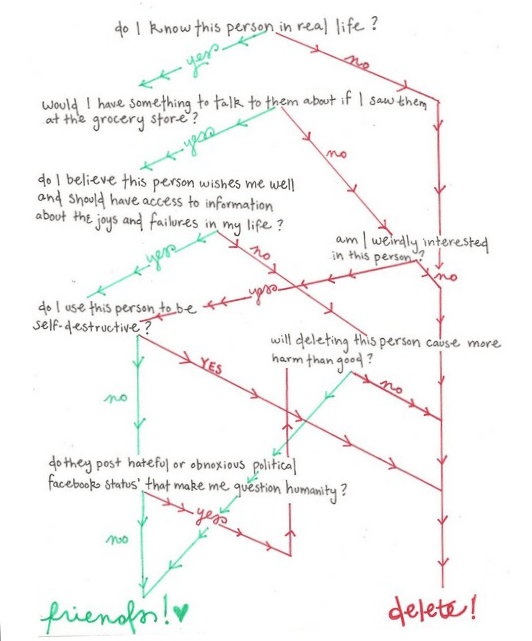 do I know this person in real life?
yes
no
would I have something to talk to them about if I saw them
at the grocery store?
yes
no
do I believe this person wishes me well
and should have access to information
about the joys and failures in my life?
yes
no
am I weirdly interested
in this person?
no
yes
do I use this person to be
self-destructive?
will deleting this person cause more
harm than good?
YES
no
no
do they post hateful or obnoxious political
facebook status' that make me question humanity?
yes
no
friends! ♥
delete!